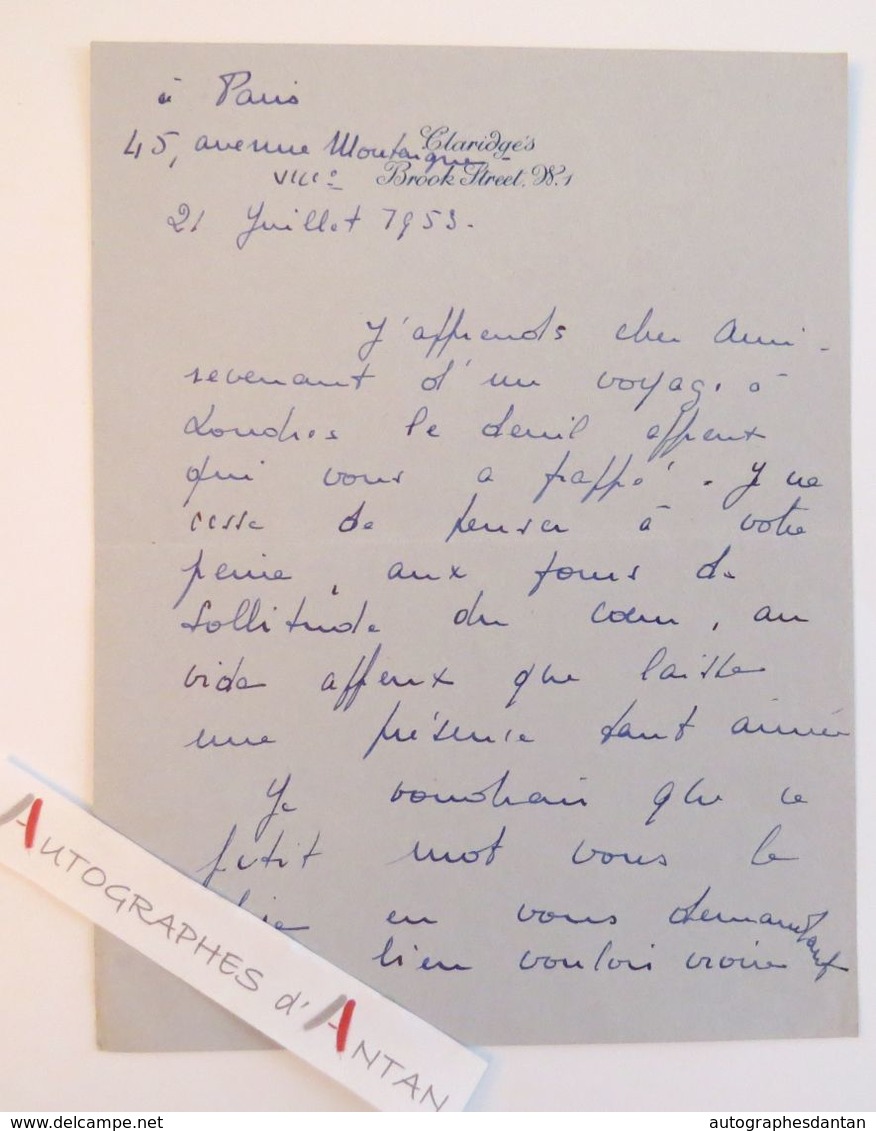 à Paris
Claridge's
45, avenue Montaigne
Brook Street, W.1
VIIIe
21 Juillet 1953.
J'apprends cher Ami
revenant d'un voyage à
Londres le deuil affreux
qui vous a frappé. Je ne
cesse de penser à votre
peine, aux jours de
sollitude du cœur, au
vide affreux que laisse
une présence tant aimée
Je voudrais que ce
petit mot vous le
dise en vous demandant
bien vouloir croire
AUTOGRAPHES d'ANTAN
www.delcampe.net
autographesdantan